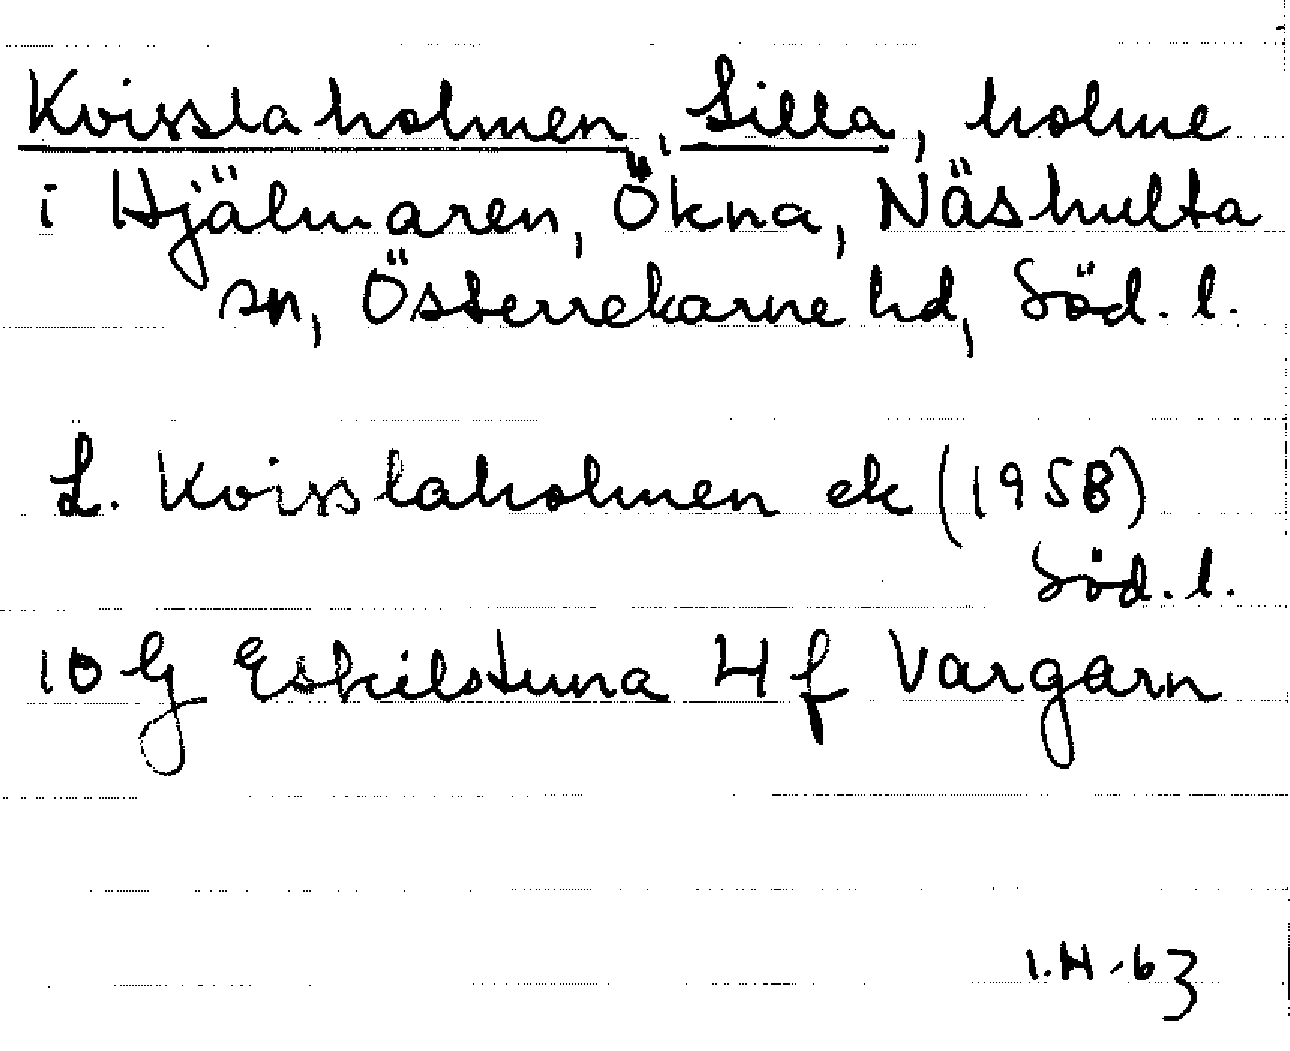 Kvisslaholmen, Lilla, holme
i Hjälmaren, Ökna, Näshulta
sn, Österrekarne hd, Söd. l.
L. Kvisslaholmen ek (1958)
Söd. l.
10 G Eskilstuna 4 f Vargarn
I.H-63